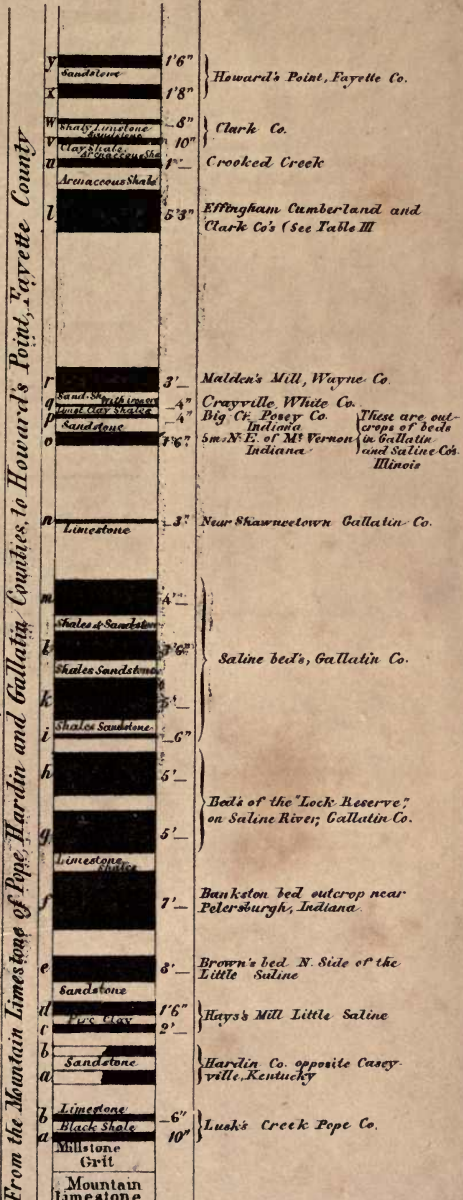 From the Mountain Limestone of Pope, Hardin and Gallatin Counties, to Howard's Point, Fayette County
y 1'6"
Sandstone
x 1'8"
Howard's Point, Fayette Co.
w 8"
Shaly Limestone
Sandstone
v 10"
Clark Co.
Clay Shale
Arenaceous Sha
u 1'
Crooked Creek
Arenaceous Shale
l 5'3"
Effingham Cumberland and
Clark Co's (See Table III
r 3'
Malden's Mill, Wayne Co.
Sand. Sh. with irenore
q 4" Crayville, White Co.
Clay Shales
p 4" Big Ck. Posey Co.
Indiana
Sandstone
o 1'6" 5m. N.E. of Mt Vernon
Indiana
These are out-
crops of beds
in Gallatin
and Saline Co's
Illinois
n 3" Near Shawneetown Gallatin Co.
Limestone
m 4'
Shales & Sandston
l 3'6"
Saline bed's, Gallatin Co.
Shales Sandstone
k 5'
Shales Sandstone
i 6"
h 5'
Bed's of the "Lock Reserve",
on Saline River, Gallatin Co.
g 5'
Limestone
Shales
f 7' Bankston bed outcrop near
Petersburgh, Indiana
e 3' Brown's bed N. Side of the
Little Saline
Sandstone
d 1'6"
Fire Clay
c 2'
Hays's Mill Little Saline
b
Sandstone
a
Hardin Co. opposite Casey-
ville, Kentucky
Limestone
b 6"
Black Shale
a 10"
Lusk's Creek Pope Co.
Millstone
Grit
Mountain
Limestone